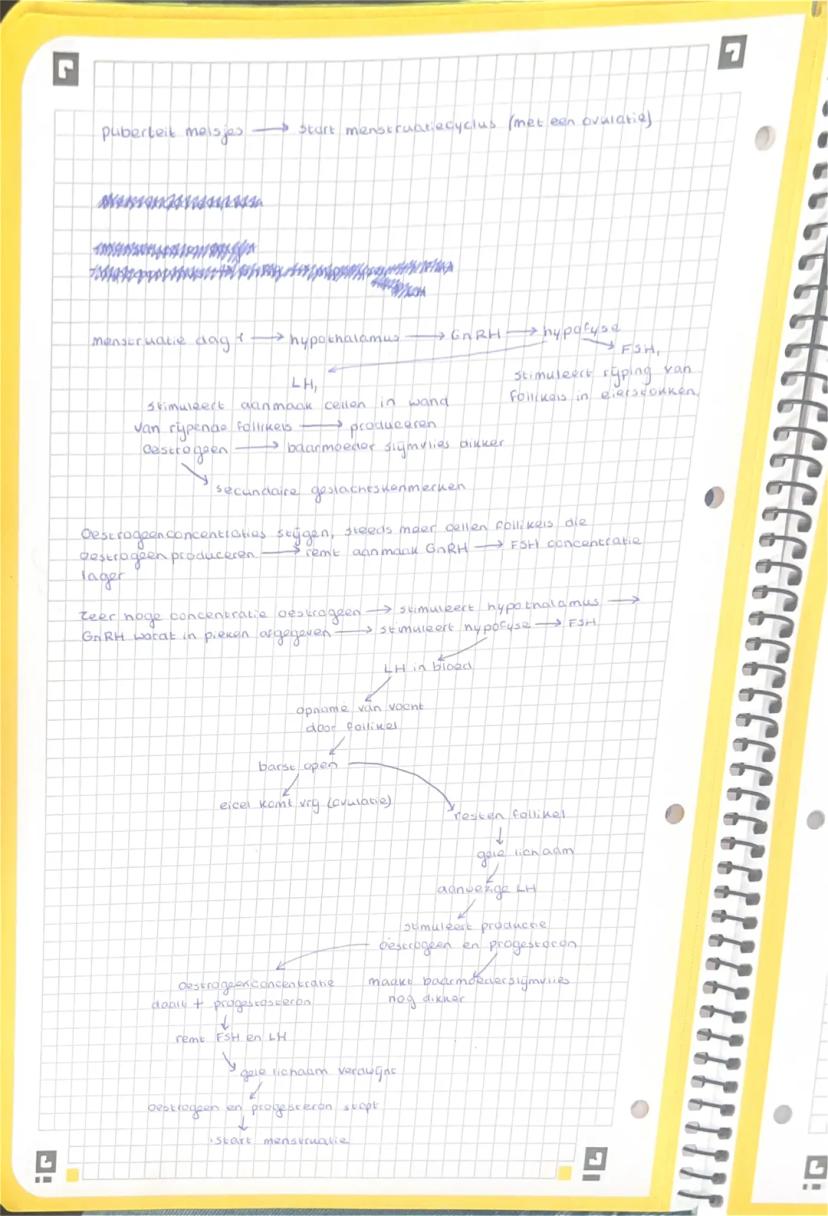 puberteit meisjes → start menstruatiecyclus (met een ovulatie)
menstruatie dag 1 → hypothalamus → GnRH → hypofyse
FSH,
stimuleert rijping van
follikels in eierstokken
LH,
stimuleert aanmaak cellen in wand
van rijpende follikels → produceren
oestrogeen → baarmoeder slijmvlies dikker
secundaire geslachtskenmerken
Oestrogeenconcentraties stijgen, steeds meer cellen follikels die
oestrogeen produceren → remt aanmaak GnRH → FSH concentratie
lager
zeer hoge concentratie oestrogeen → stimuleert hypothalamus →
GnRH wordt in pieken afgegeven → stimuleert hypofyse → FSH
LH in bloed
opname van vocht
door follikel
barst open
eicel komt vrij (ovulatie)
resten follikel
gele lichaam
aanwezige LH
stimuleert productie
oestrogeen en progesteron
oestrogeenconcentratie
daalt + progestosteron
maakt baarmoederslijmvlies
nog dikker
remt FSH en LH
gele lichaam verdwijnt
oestrogeen en progesteron stopt
start menstruatie